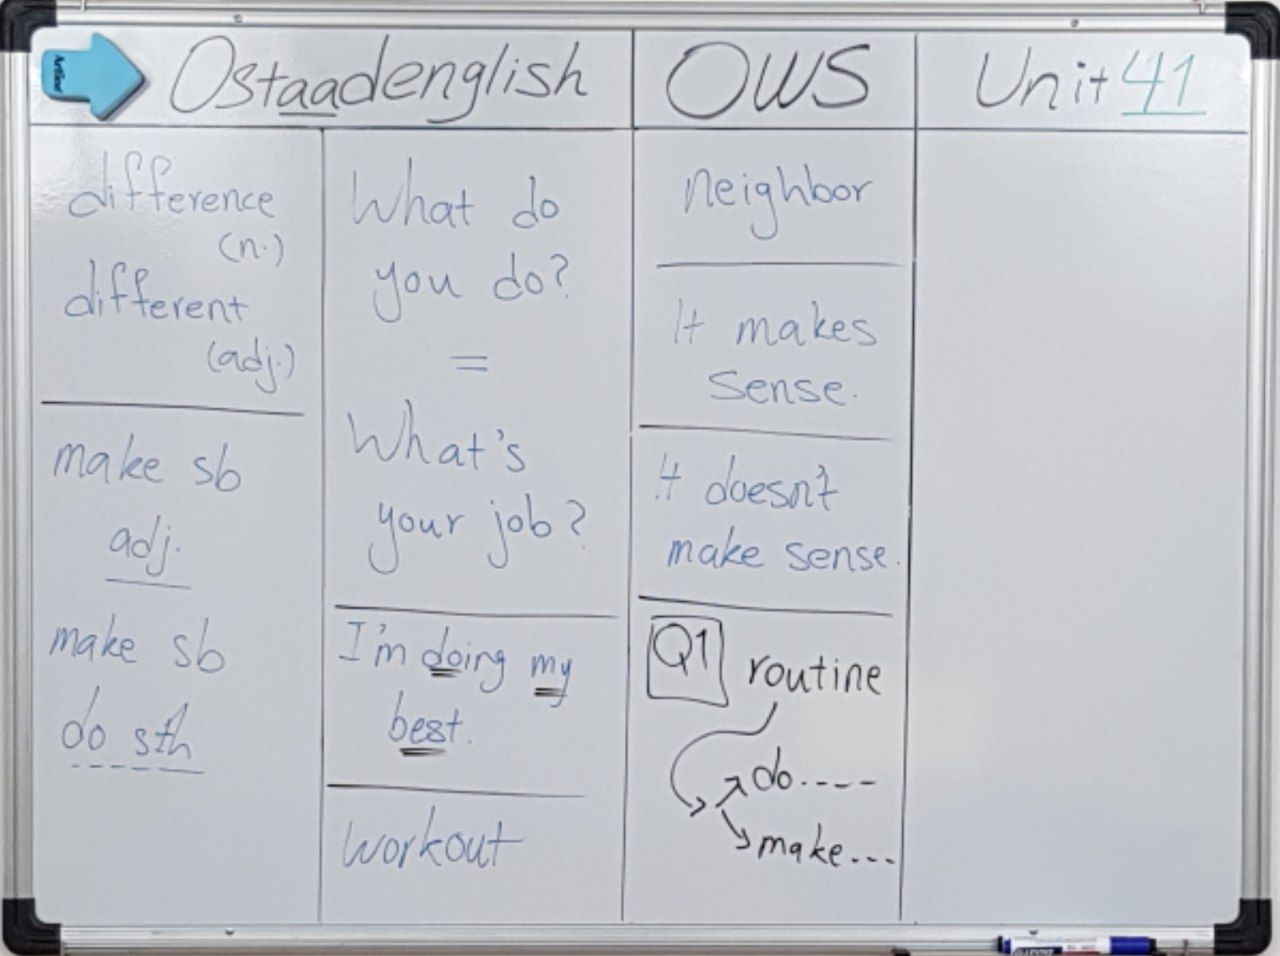 Artline
Ostaadenglish
OWS
Unit 41
difference
(n.)
different
(adj.)
make sb
adj.
make sb
do sth
What do
you do?
=
What's
your job?
I'm doing my
best.
workout
neighbor
It makes
sense.
It doesn't
make sense.
Q1 routine
do.----
make...